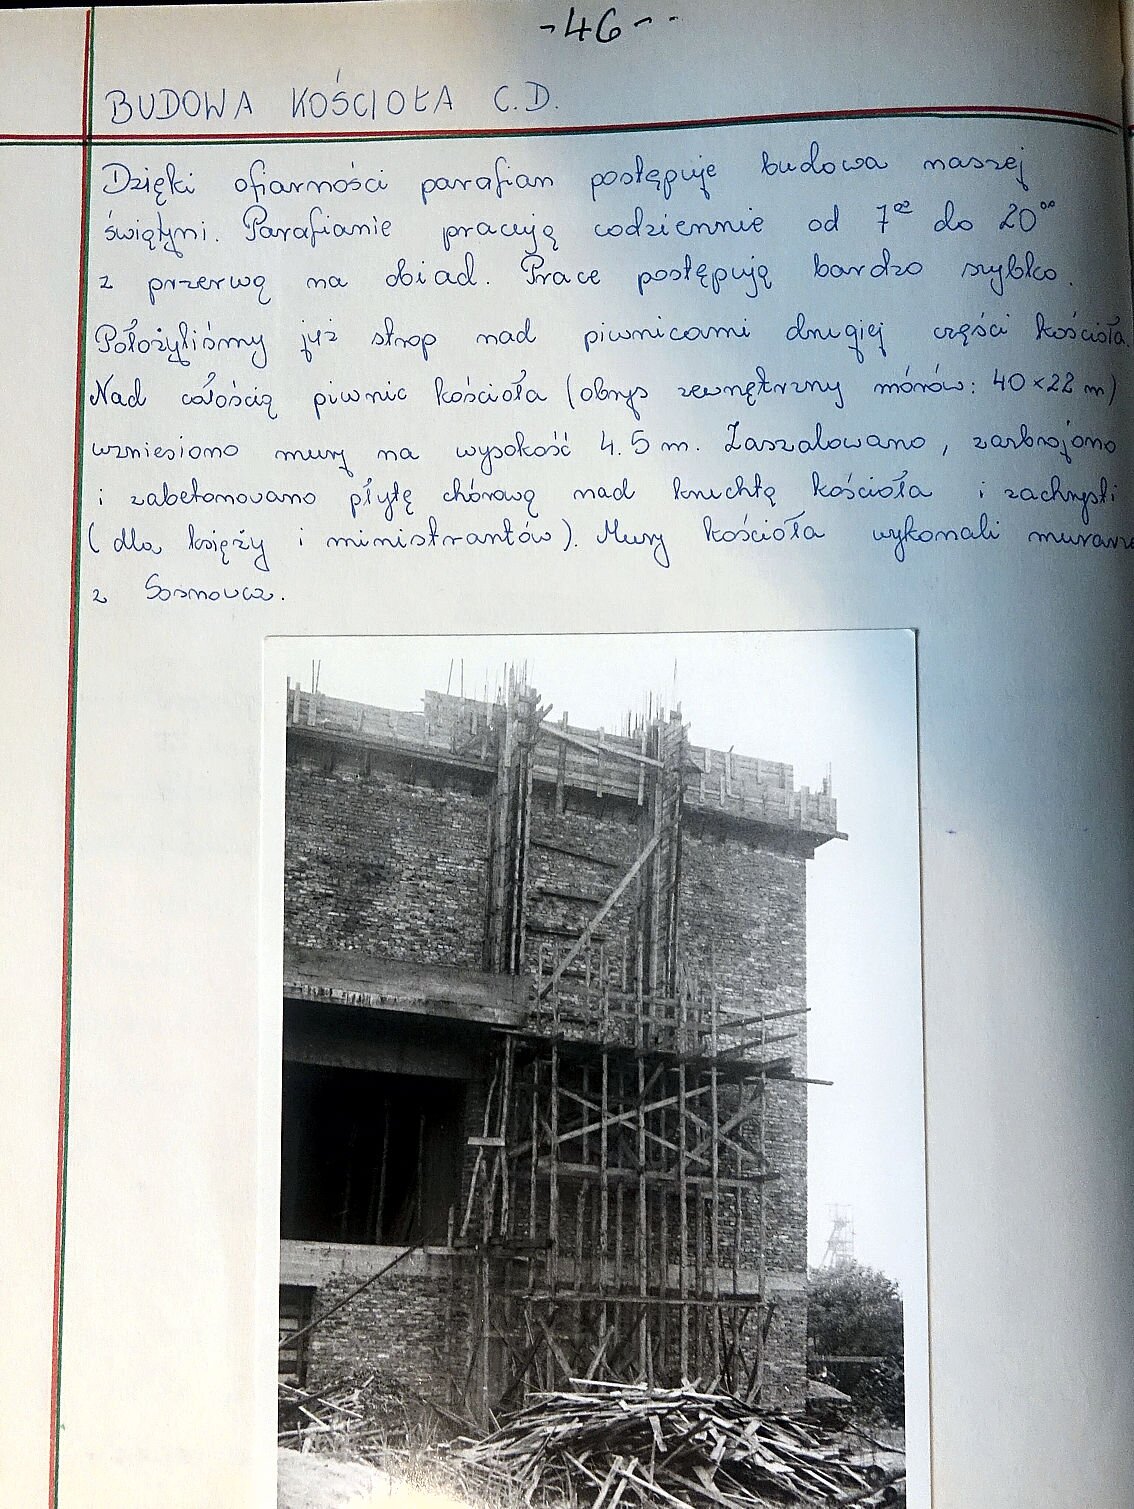 -46-
BUDOWA KOŚCIOŁA C.D.
Dzięki ofiarności parafian postępuje budowa naszej
świątyni. Parafianie pracują codziennie od 7⁰⁰ do 20⁰⁰
z przerwą na obiad. Prace postępują bardzo szybko.
Położyliśmy już strop nad piwnicami drugiej części kościoła.
Nad całością piwnic kościoła (obrys zewnętrzny murów: 40×22 m)
wzniesiono mury na wysokość 4.5 m. Zaszalowano, zazbrojono
i zabetonowano płytę chórową nad kruchtą kościoła i zachrysti
(dla księży i ministrantów). Mury kościoła wykonali murarze
z Sosnowca.